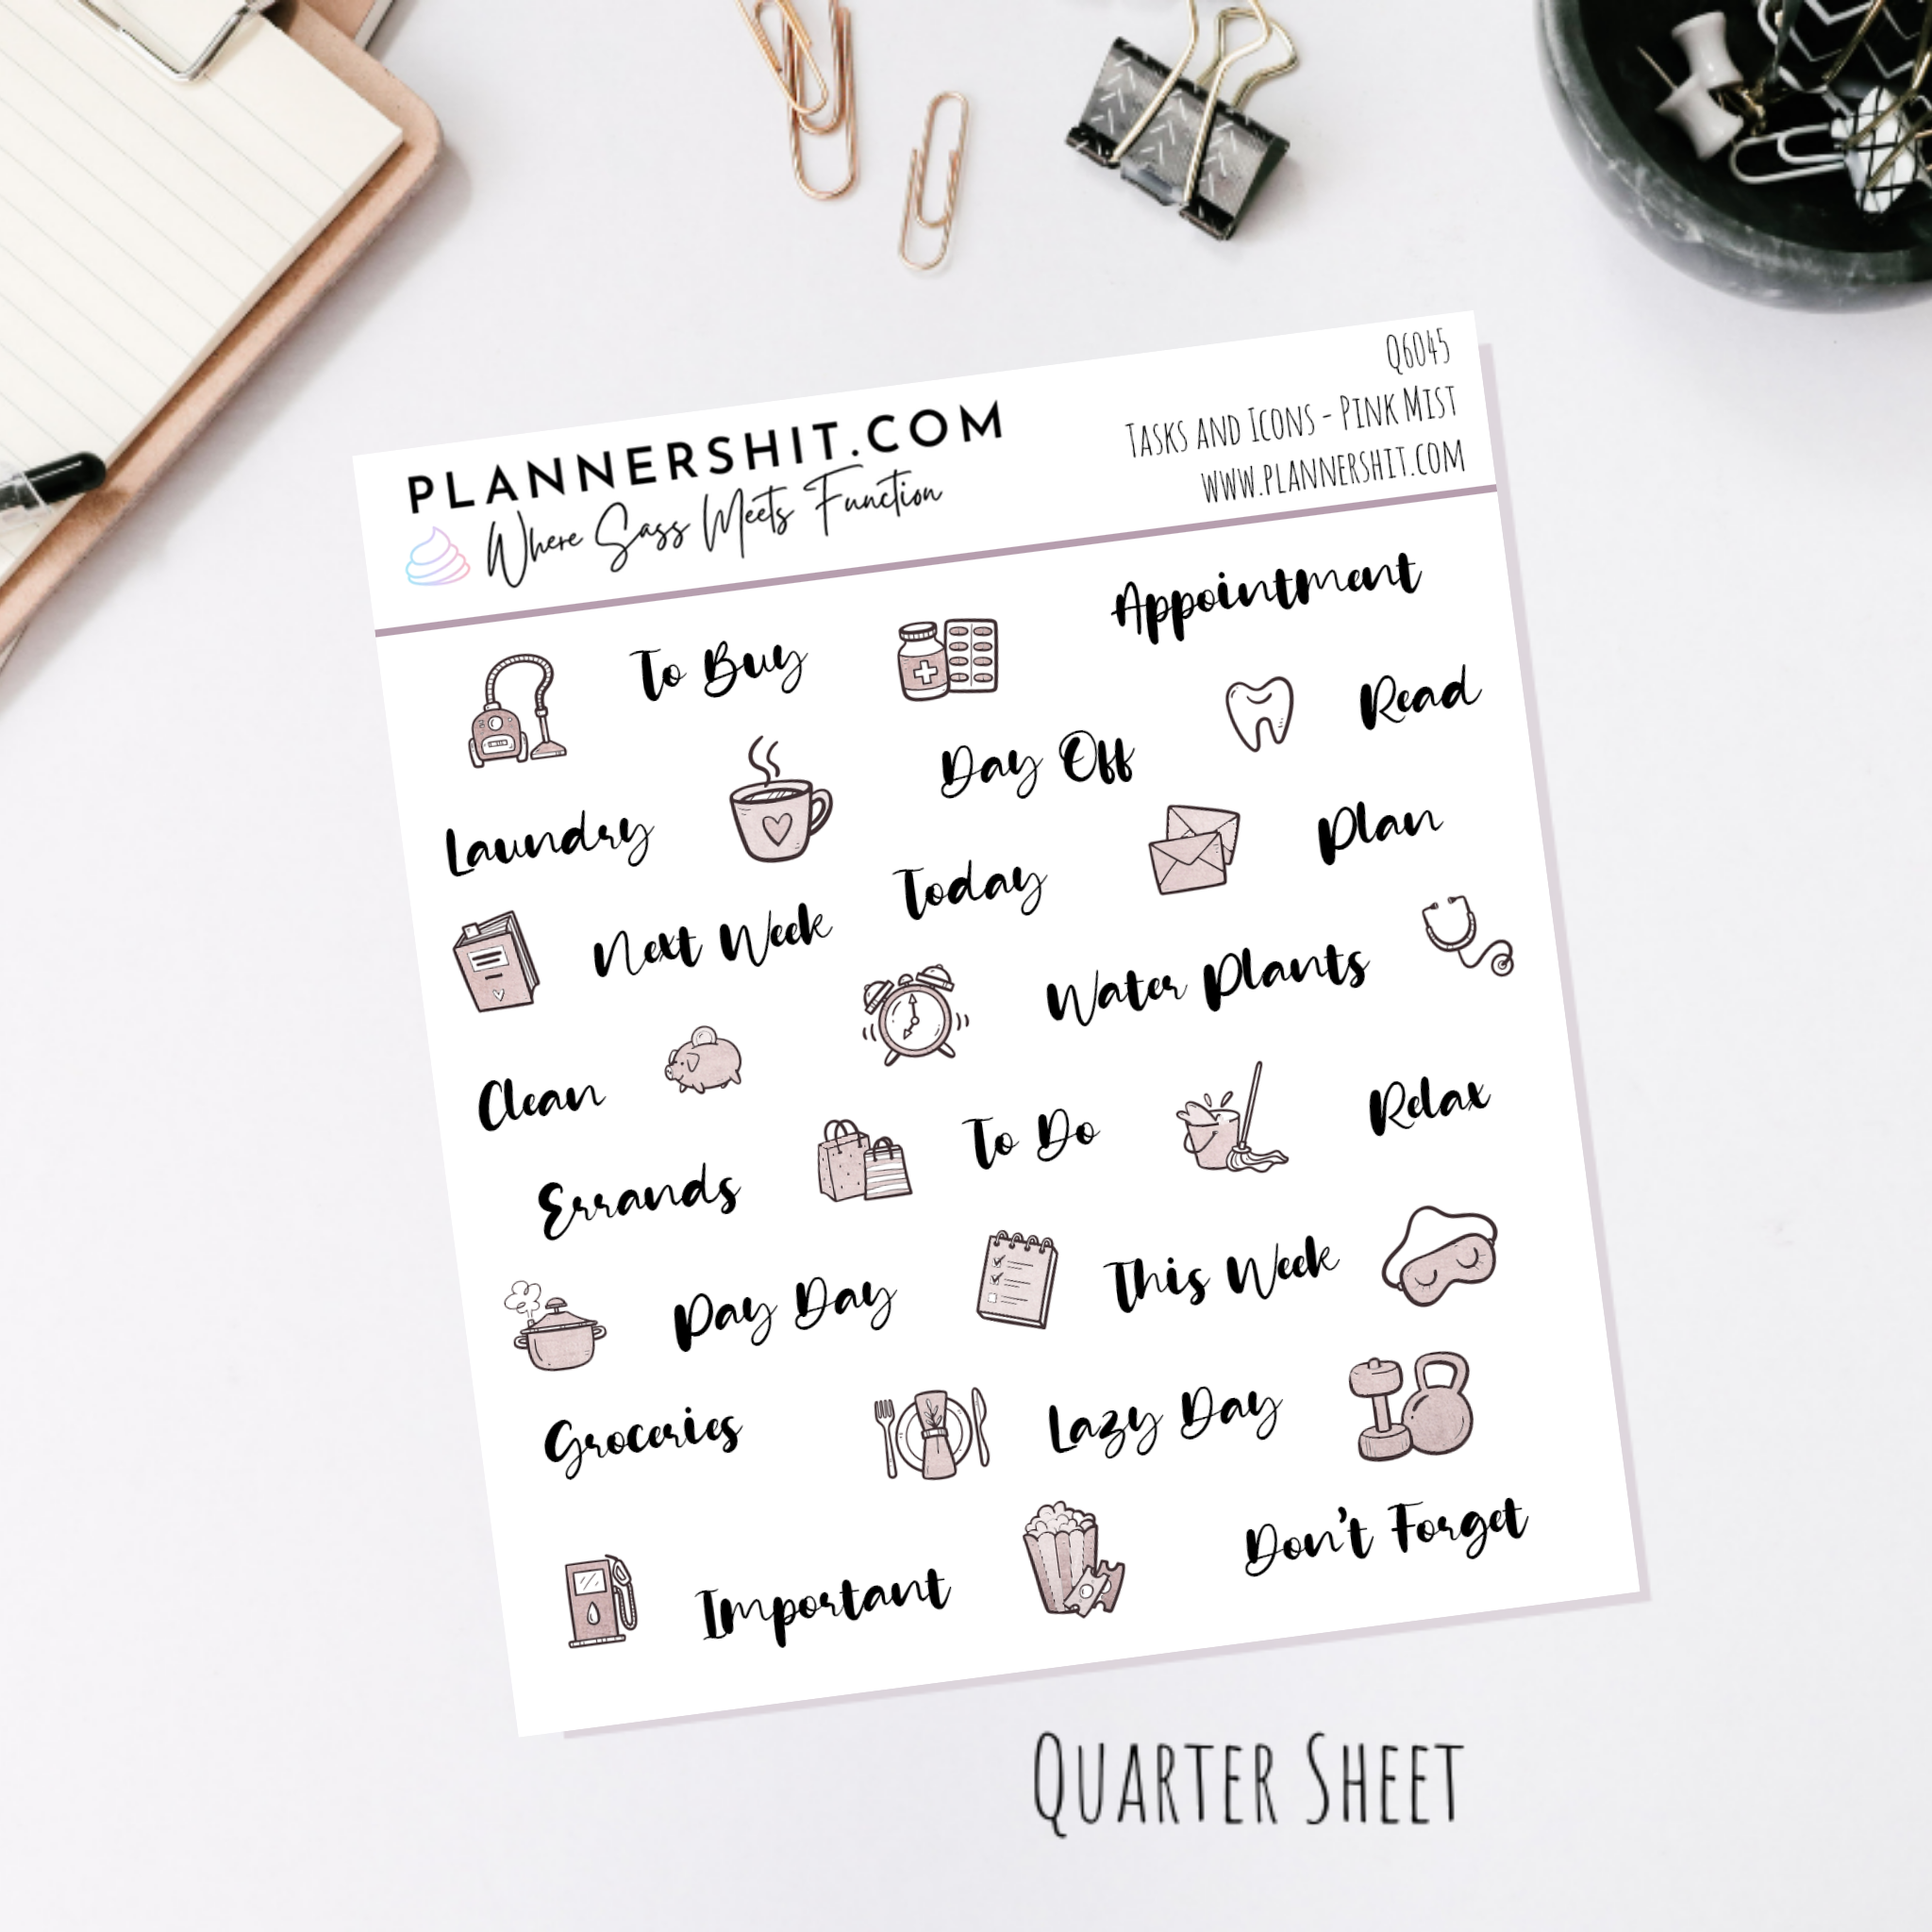 Q6045
PLANNERSHIT.COM
Tasks and Icons - Pink Mist
Where Sass Meets Function
www.plannershit.com
Appointment
To Buy
Read
Day Off
Laundry
Plan
Today
Next Week
Water Plants
Clean
To Do
Relax
Errands
This Week
Pay Day
Groceries
Lazy Day
Don't Forget
Important
Quarter Sheet